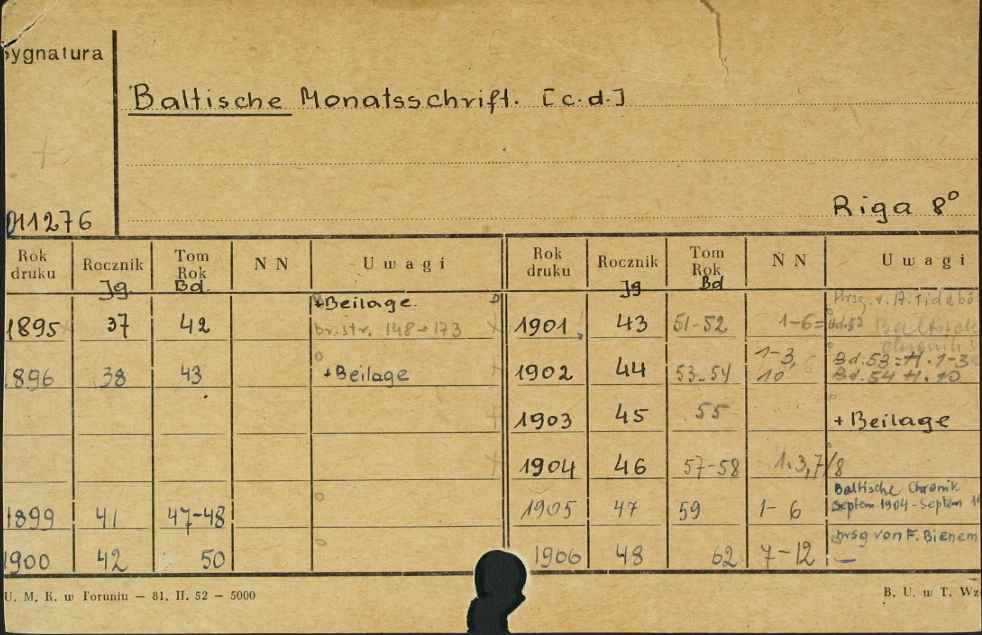 Sygnatura
Baltische Monatsschrift. [c.d.]
011276
Riga 8°
Rok druku Rocznik Jg. Tom Rok Bd. NN Uwagi Rok druku Rocznik Jg Tom Rok Bd NN Uwagi
1895 37 42 +Beilage. br. str. 148-173 1901 43 51-52 1-6=Bd.52 Hrsg. v.
1896 38 43 +Beilage 1902 44 53-54 1-3, 10 Bd.53=H.1-3 Bd.54 H.10
1903 45 55 +Beilage
1904 46 57-58 1.3,7/8
1899 41 47-48 1905 47 59 1-6 Baltische Chronik Septem 1904-Septem
1900 42 50 1906 48 62 7-12 hrsg von F. Bienem
U. M. K. w Toruniu — 81. II. 52 — 5000
B. U. w T. Wz